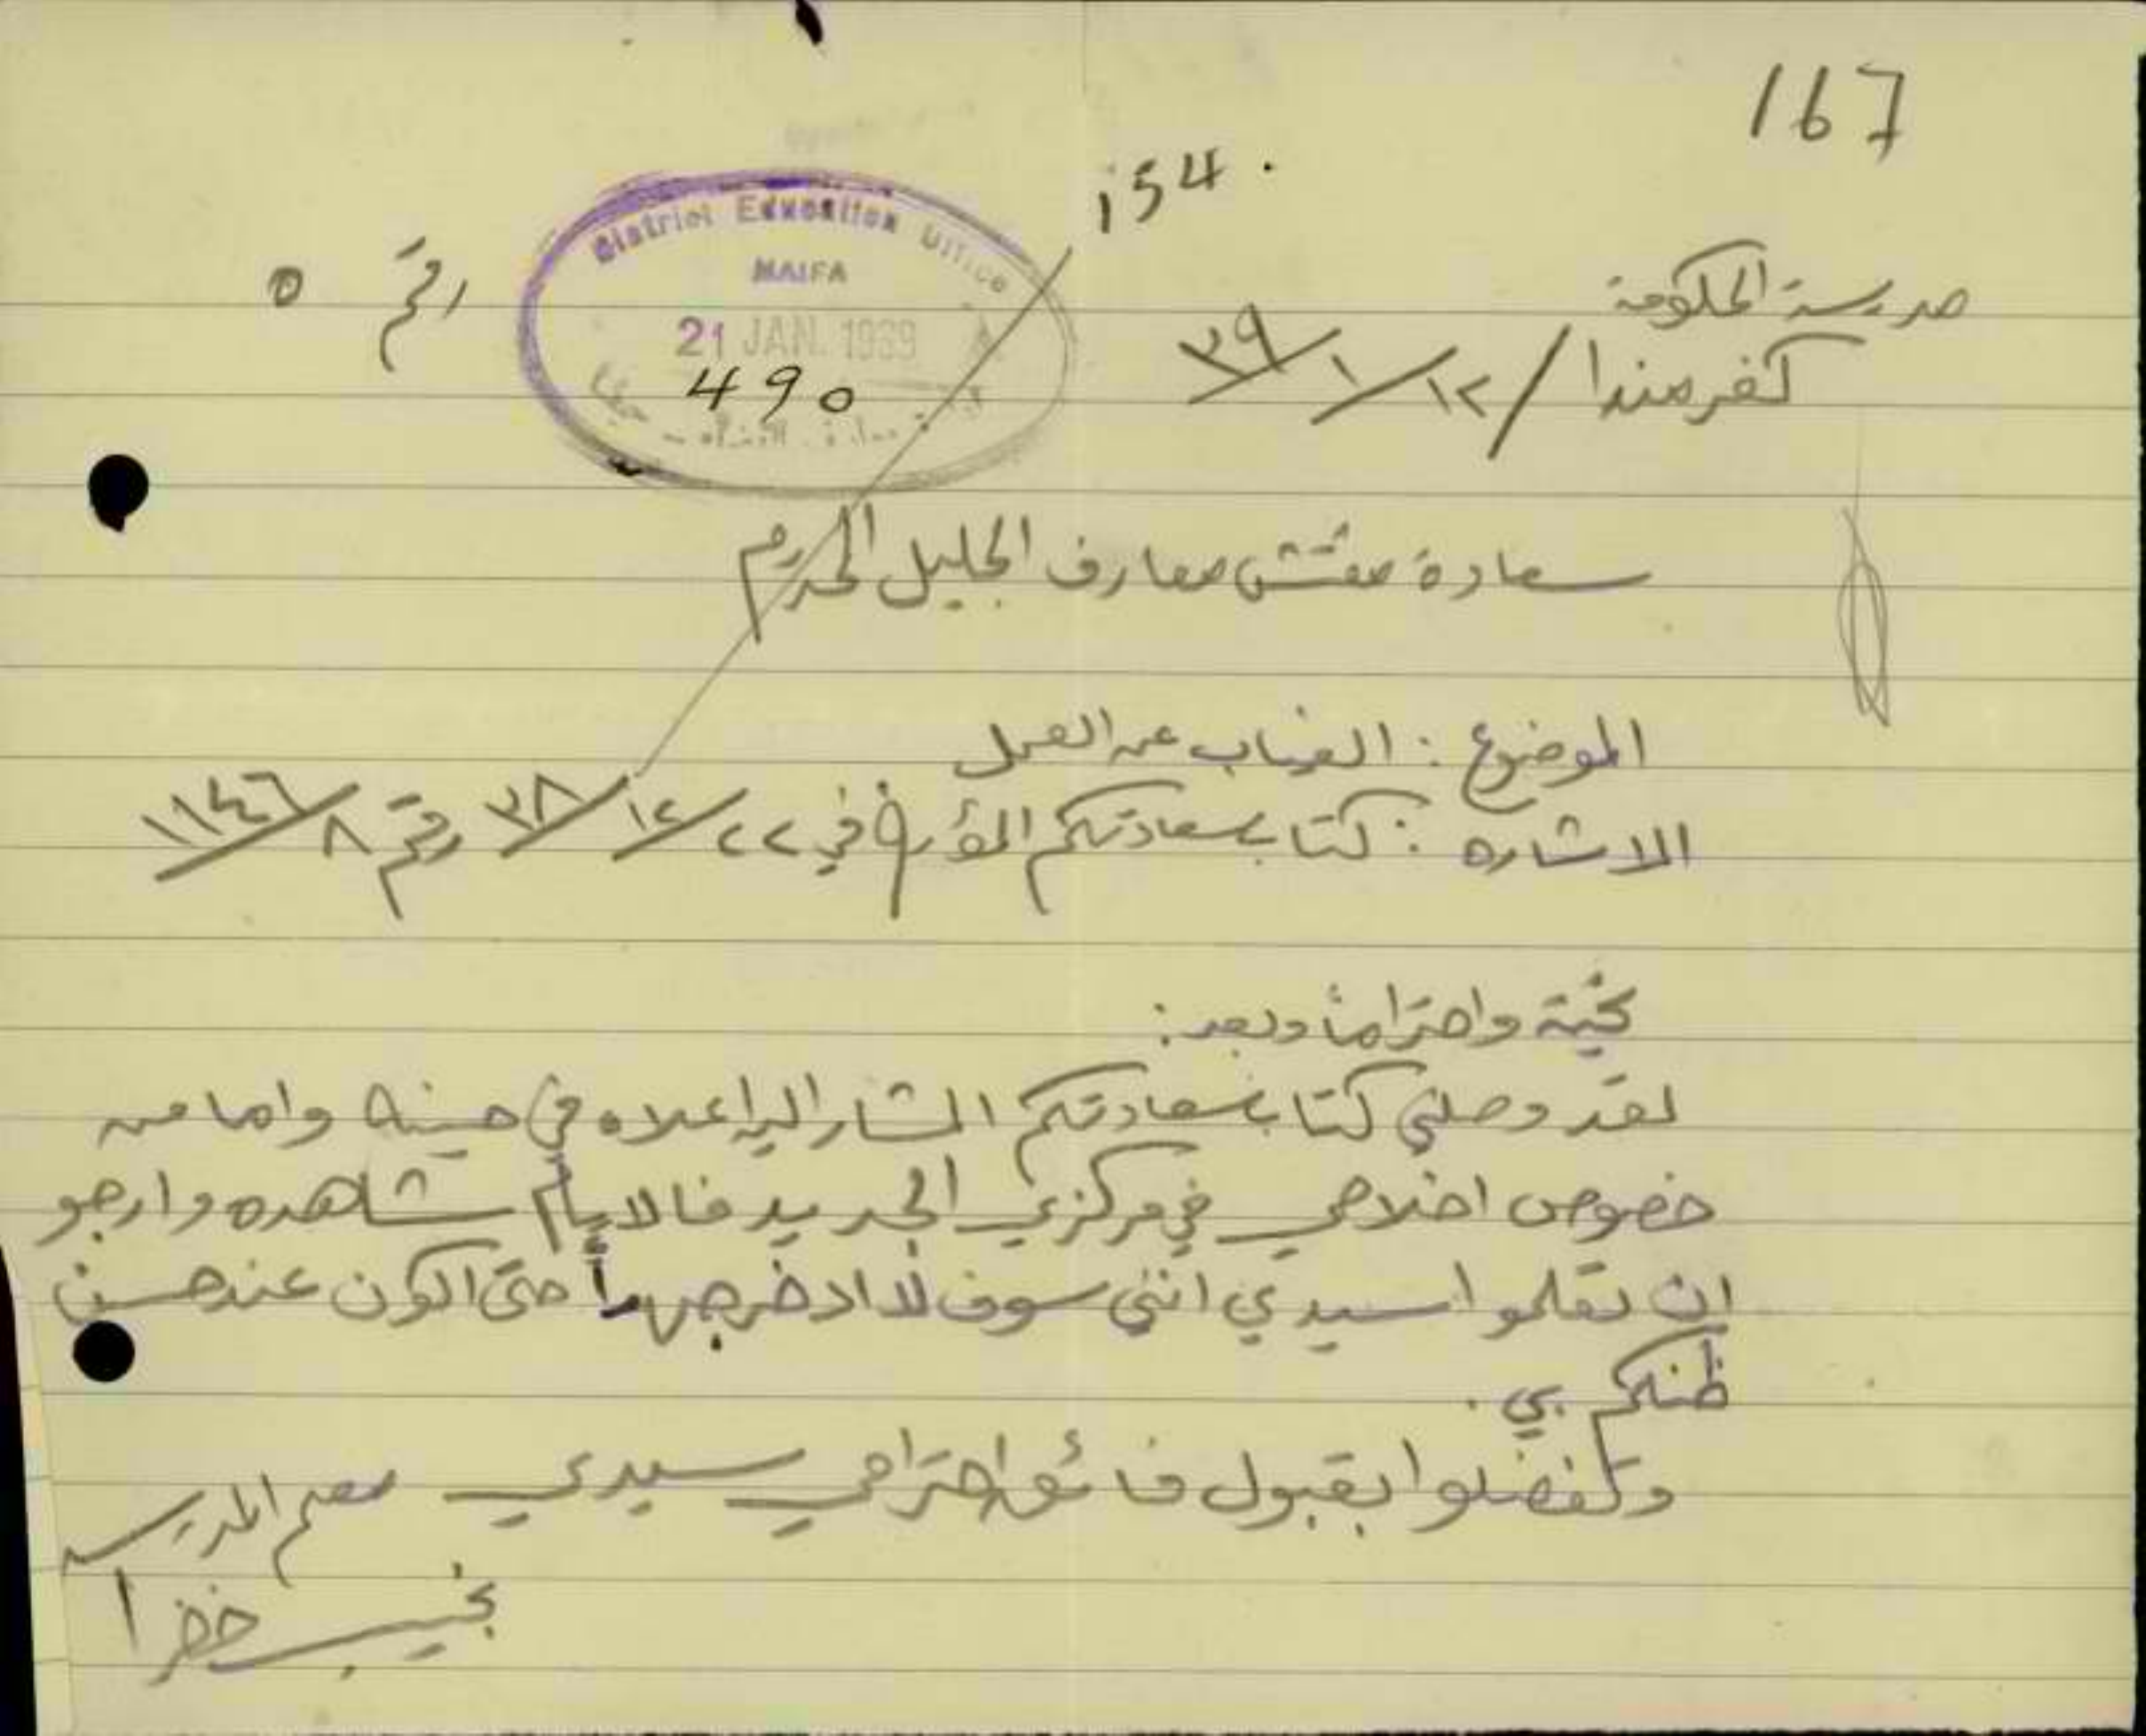 167
154.
District Education Office
HAIFA
21 JAN. 1939
490
رقم ٥
مدرسة الحكومة
كفرمندا / ١٢/١/٣٩
سعادة مفتش معارف الجليل المحترم
الموضوع : الغياب عن العمل
الاشاره : كتاب سعادتكم المؤرخ في ٢٢/١٢/٣٨ رقم ٨/١١٤٦
تحية واحتراماً وبعد :
لقد وصلني كتاب سعادتكم المشار اليه اعلاه في حينه واما من
خصوص اخلاصي في مركزي الجديد فالايام شاهده وارجو
ان تعلموا سيدي انني سوف لا ادخر جهداً حتى اكون عند حسن
ظنكم بي .
وتفضلوا بقبول فائق احترامي سيدي معلم المدرسه
نجيب خضرا